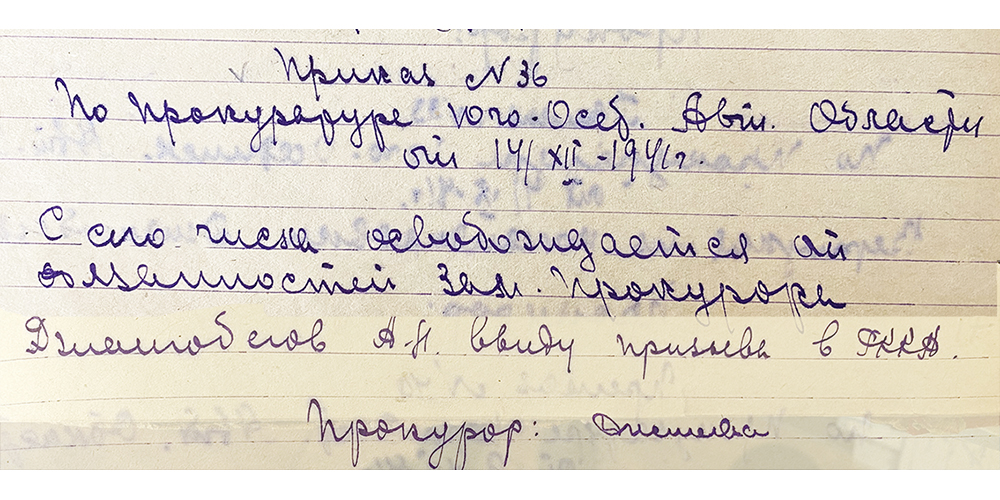 Приказ N 36
По Прокуратуре Юго-Осет. Авт. Области
от 14/XII-1941г.
С сего числа освобождается от
обязанностей Зам. Прокурора
А.П. ввиду призыва в РККА.
Прокурор: